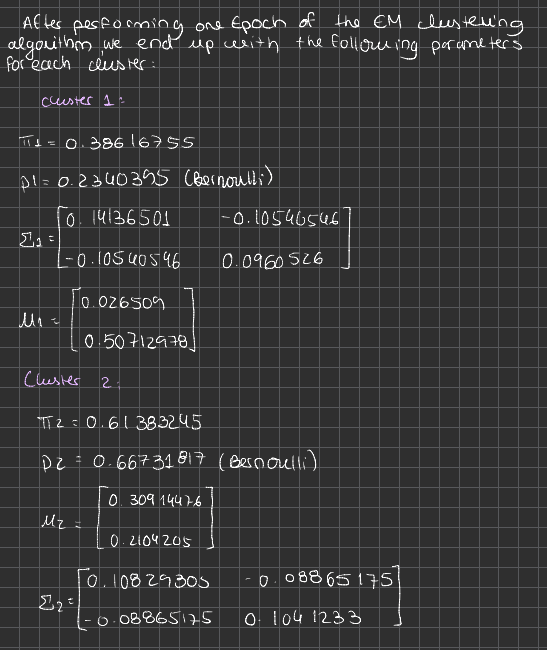 After performing one Epoch of the EM clustering
algorithm, we end up with the following parameters
for each cluster:
cluster 1:
π1 = 0.38616755
p1 = 0.2340395 (Bernoulli)
Σ1 = [0.14136501 -0.10540546
-0.10540546 0.0960526]
μ1 = [0.026509
0.50712978]
Cluster 2:
π2 = 0.61383245
p2 = 0.66731817 (Bernoulli)
μ2 = [0.30914476
0.2104205]
Σ2 = [0.10829305 -0.08865175
-0.08865175 0.1041233]